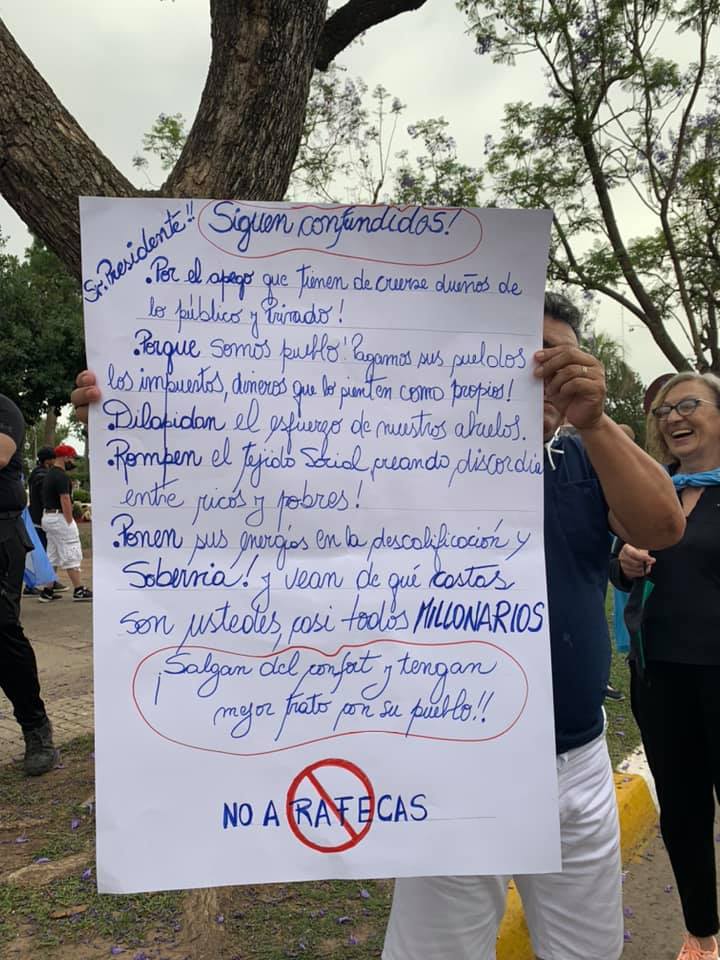 Sr. Presidente!!
Siguen confundidos!
.Por el apego que tienen de creerse dueños de
lo público y Privado!
.Porque somos pueblo! Pagamos sus sueldos
los impuestos, dineros que lo sienten como propios!
.Dilapidan el esfuerzo de nuestros abuelos.
.Rompen el tejido Social creando discordia
entre ricos y pobres!
.Ponen sus energías en la descalificación y
Sobervia! y vean de qué costas
son ustedes, casi todos MILLONARIOS
¡Salgan del confort y tengan
mejor trato con su pueblo!!
NO A RAFECAS